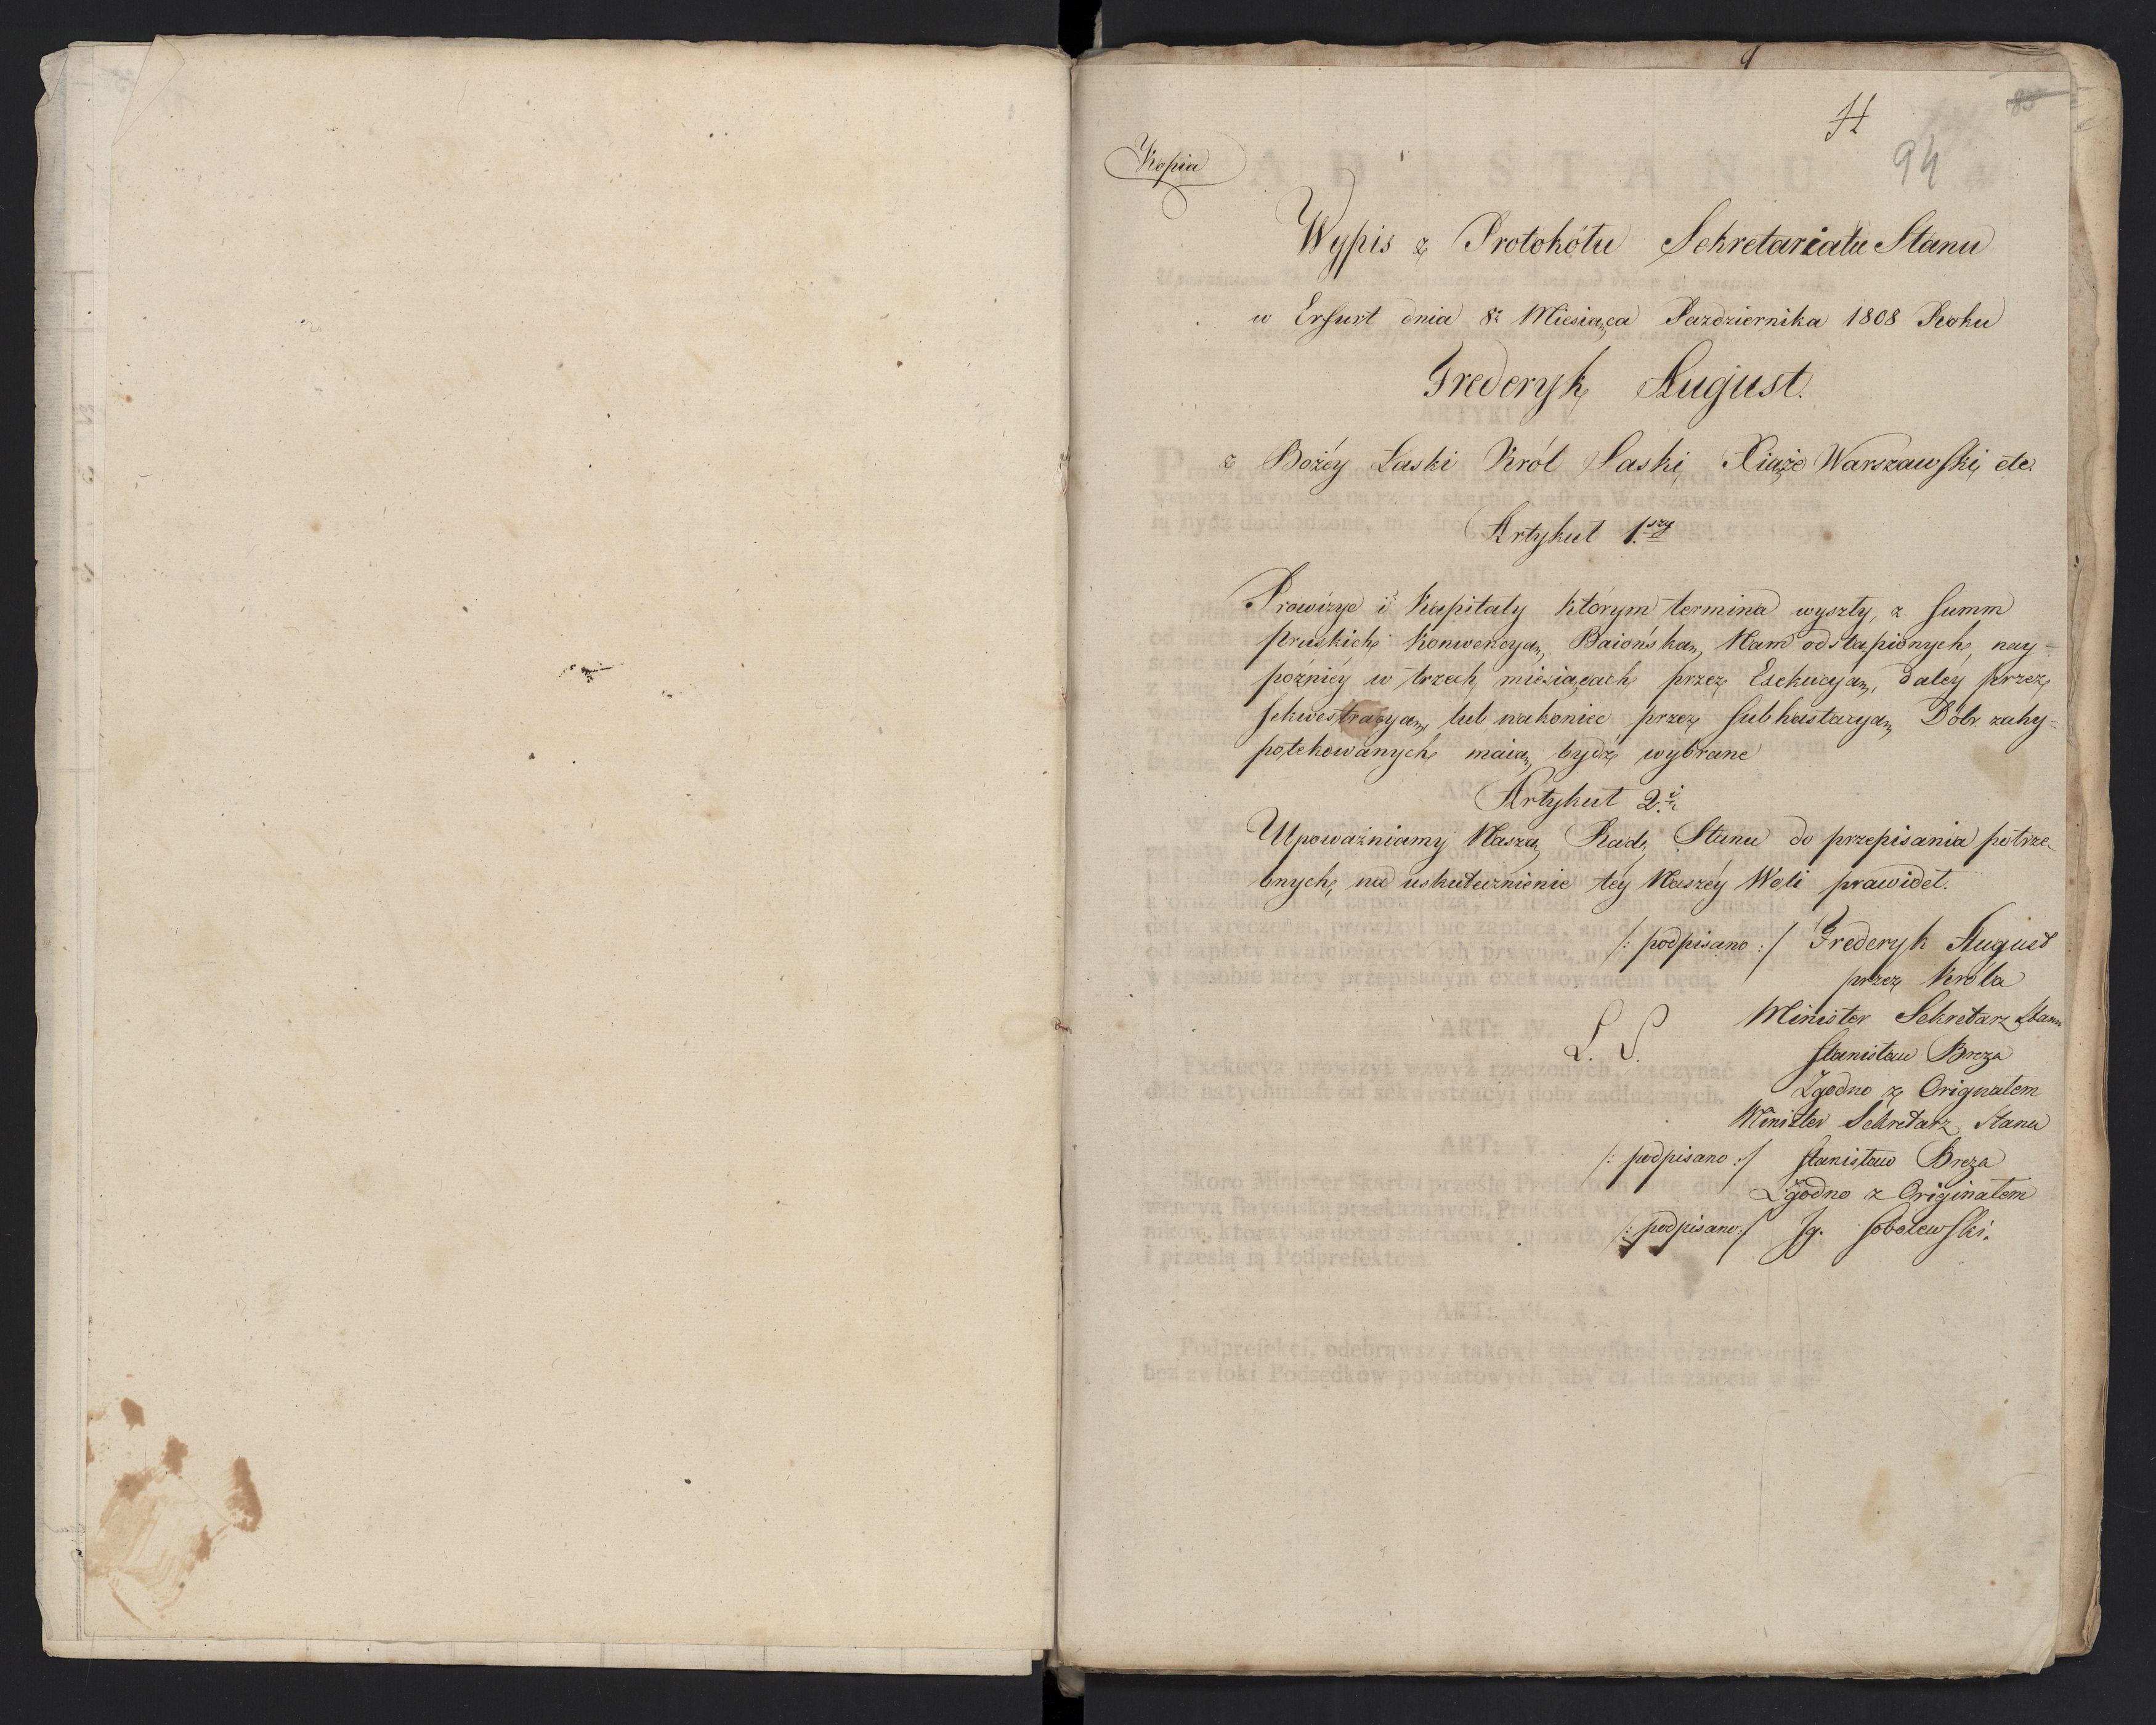 H
94
Kopia
Wypis z Protokółu Sekretariatu Stanu
w Erfurt dnia 8º Miesiąca Pazdziernika 1808 Roku
Frederyk August.
z Bożéy Łaski Król Saski, Xiąże Warszawski, etc.
Artykuł 1.szy
Prowizye i Kapitały którym termina wyszły, z summ
Pruskich Konwencyą Baiońską Nam odstąpionych, nay=
późniéy w trzech miesiącach przez Exekucyą, daley przez
sekwestracyą, lub nakoniec przez subhastacyą Dóbr zahy=
potekowanych maią bydź wybrane
Artykuł 2.i
Upoważniamy Naszą Radę Stanu do przepisania potrze-
bnych, na uskutecznienie téy Naszéy Woli prawideł.
/: podpisano :/ Frederyk August
przez Króla
Minister Sekretarz Stanu
L. S.
Stanisław Breza
Zgodno z Orignałem
Minister Sekretarz Stanu
/: podpisano :/ Stanisław Breza
Zgodno z Originałem
/: podpisano :/ Ig. Sobolewski.